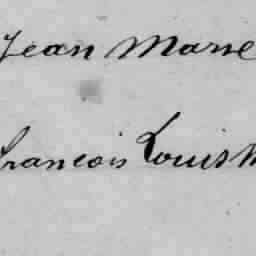 Jean Marie
François Louis M